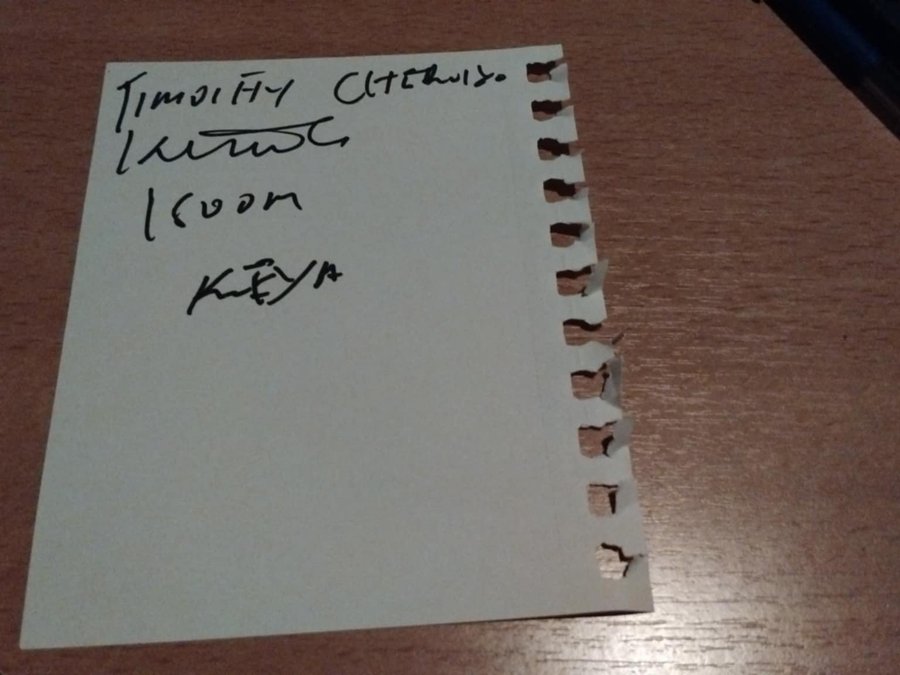 TIMOTHY CHERUIYO
1500M
KENYA